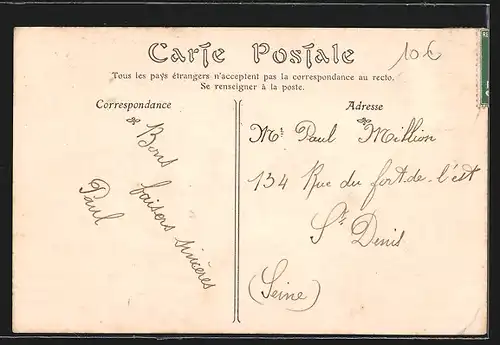 Carte Postale
10€
Tous les pays étrangers n'acceptent pas la correspondance au recto.
Se renseigner à la poste.
Correspondance
Bons
baisers sincères
Paul
Adresse
Mr Paul Million
134 Rue du fort-de-l'est
St Denis
(Seine)